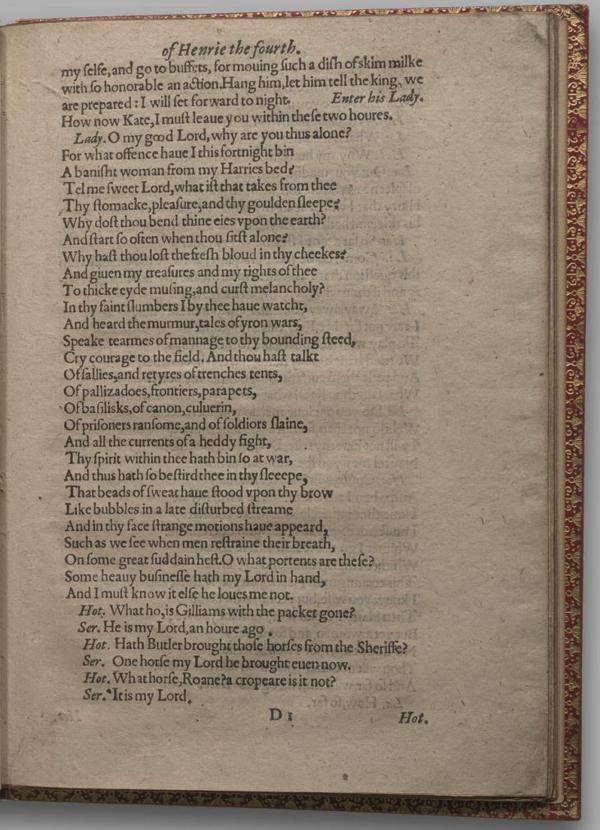 of Henrie the fourth.
my selfe, and go to buffets, for mouing such a dish of skim milke
with so honorable an action. Hang him, let him tell the king, we
are prepared: I will set forward to night. Enter his Lady.
How now Kate, I must leaue you within these two houres.
Lady. O my good Lord, why are you thus alone?
For what offence haue I this fortnight bin
A banisht woman from my Harries bed?
Tel me sweet Lord, what ist that takes from thee
Thy stomacke, pleasure, and thy goulden sleepe?
Why dost thou bend thine eies vpon the earth?
And start so often when thou sitst alone?
Why hast thou lost the fresh bloud in thy cheekes?
And giuen my treasures and my rights of thee
To thicke eyde musing, and curst melancholy?
In thy faint slumbers I by thee haue watcht,
And heard the murmur, tales of yron wars,
Speake tearmes of mannage to thy bounding steed,
Cry courage to the field. And thou hast talkt
Of sallies, and retyres of trenches tents,
Of pallizadoes, frontiers, parapets,
Of basilisks, of canon, culuerin,
Of prisoners ransome, and of soldiors slaine,
And all the currents of a heddy fight,
Thy spirit within thee hath bin so at war,
And thus hath so bestird thee in thy sleeepe,
That beads of sweat haue stood vpon thy brow
Like bubbles in a late disturbed streame
And in thy face strange motions haue appeard,
Such as we see when men restraine their breath,
On some great suddain hest. O what portents are these?
Some heauy businesse hath my Lord in hand,
And I must know it else he loues me not.
Hot. What ho, is Gilliams with the packet gone?
Ser. He is my Lord, an houre ago.
Hot. Hath Butler brought those horses from the Sheriffe?
Ser. One horse my Lord he brought euen now.
Hot. What horse, Roane? a cropeare is it not?
Ser. It is my Lord.
D1 Hot.